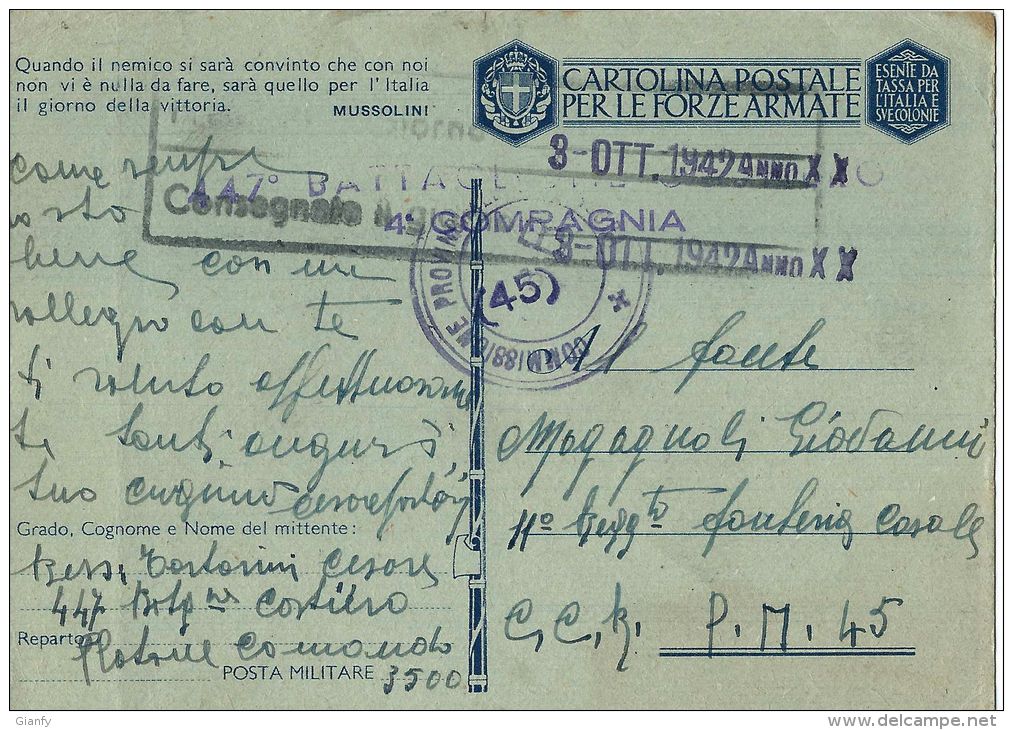 Quando il nemico si sarà convinto che con noi
non vi è nulla da fare, sarà quello per l'Italia
il giorno della vittoria. MUSSOLINI
CARTOLINA POSTALE
PER LE FORZE ARMATE
ESENTE DA
TASSA PER
L'ITALIA E
SUE COLONIE
3-OTT.1942 ANNO XX
447° BATTAGLIONE
Consegnata il
4ª COMPAGNIA
3-OTT.1942 ANNO XX
COMMISSIONE PROVIN
(45)
come sempre
sto
bene con
con te
ti saluto affettuosame
te tanti auguri
tuo cugino
Al fante
Magagnoli Giovanni
11° Regg to fanteria Casale
C.C.R. P.M. 45
Grado, Cognome e Nome del mittente:
Cesare
447 Costiero
Reparto
Plotone Comando
POSTA MILITARE 3500
Gianfy
delcampe.net